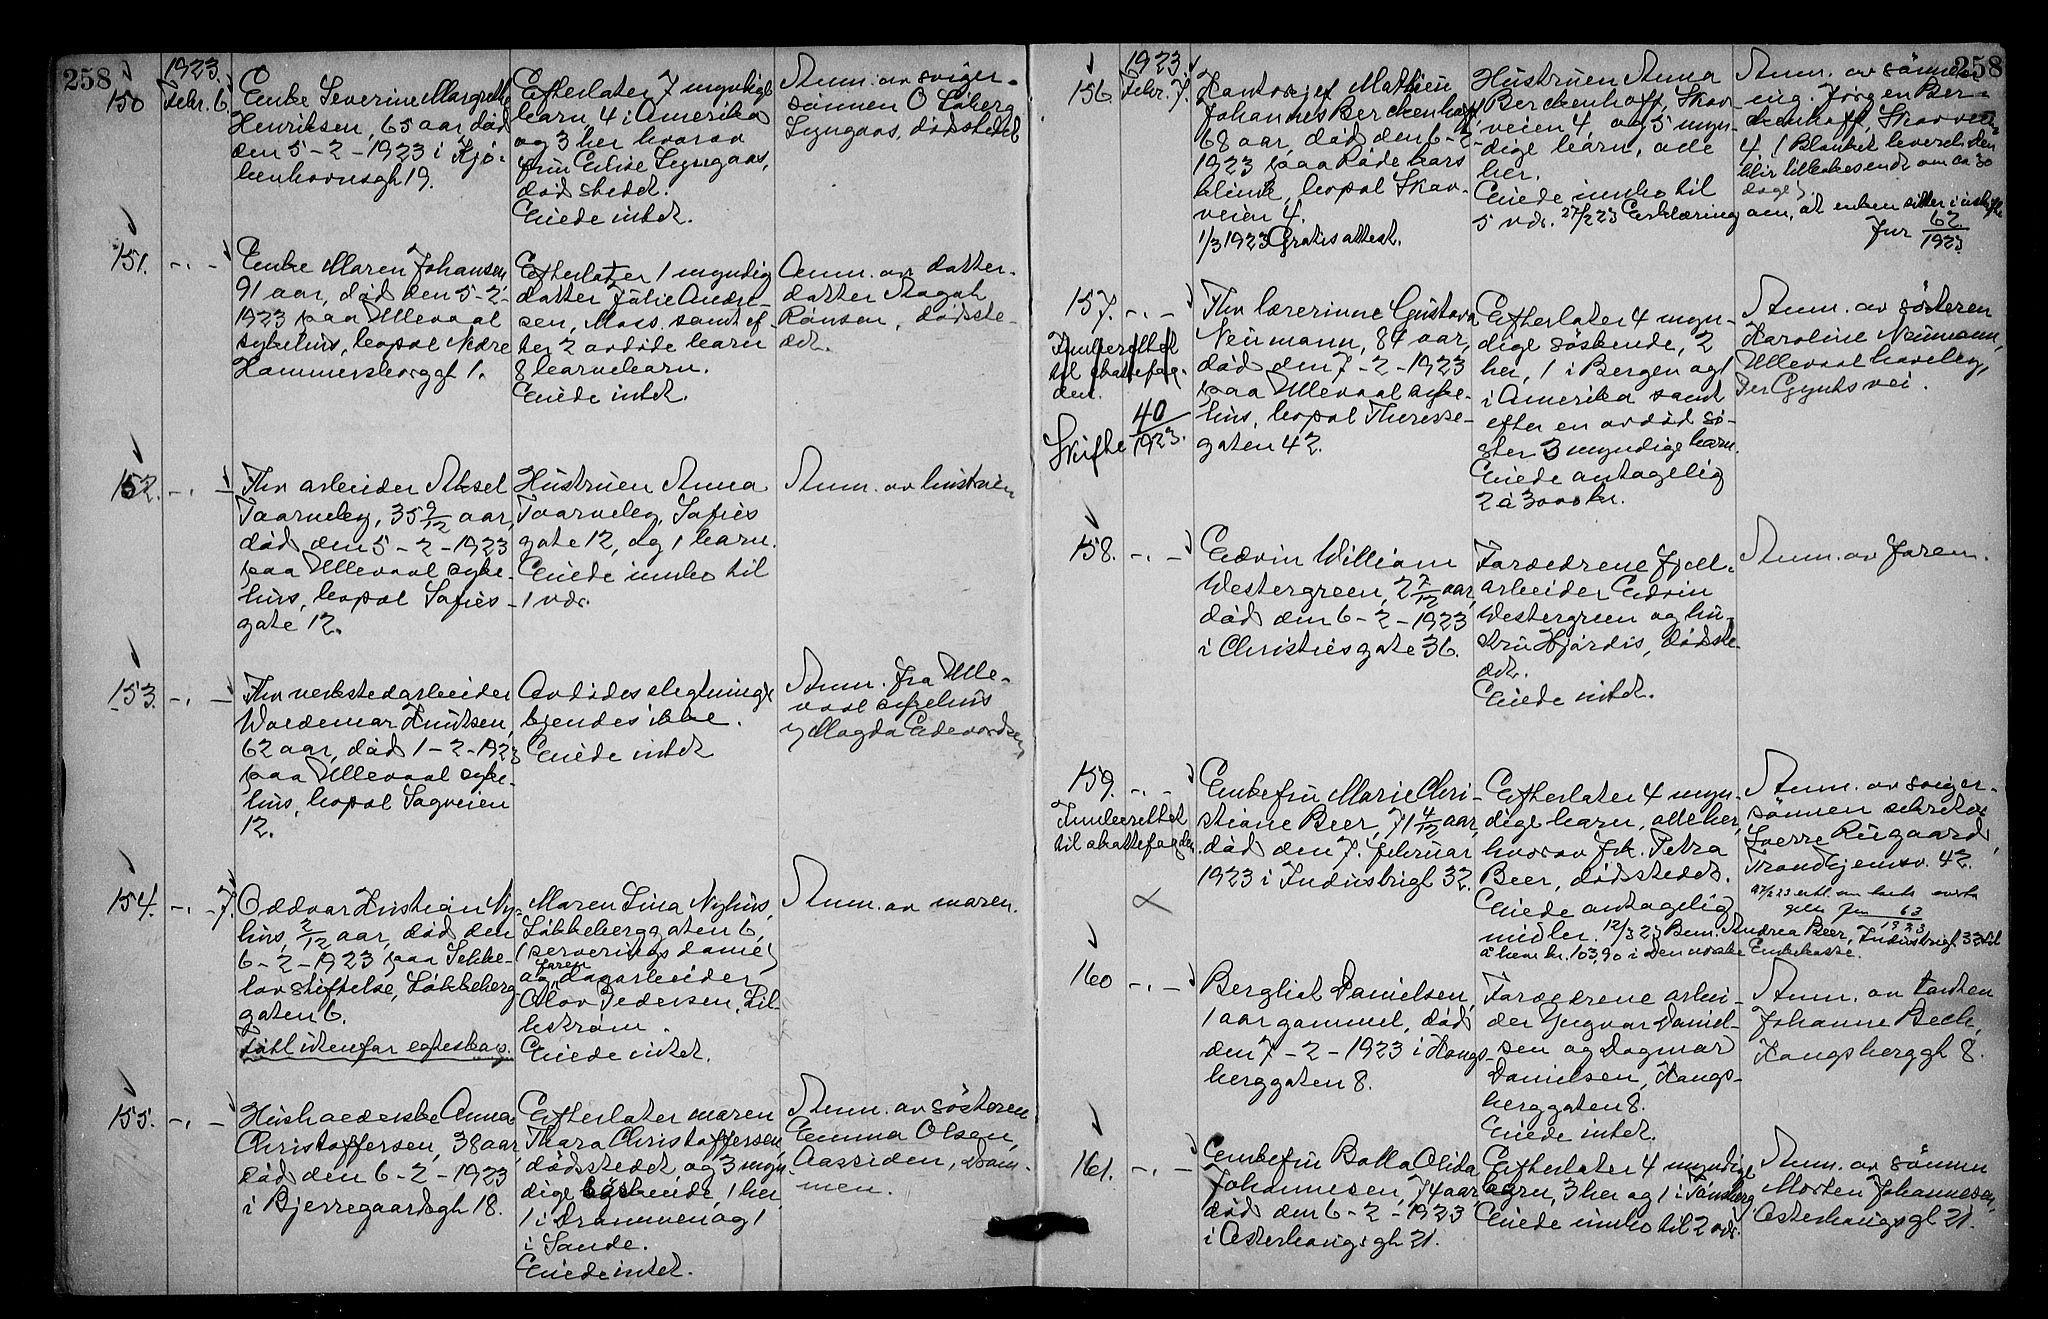 258
1923.
150 Febr. 6.
Enke Severine Margrethe
Henriksen, 65 aar, død
den 5-2-1923 i Kjø-
benhavnsgt 19.
Efterlater 7 myndige
barn, 4 i Amerika
og 3 her hvorav
fru Elise Lyngaas,
dødsstedet.
Eiede intet.
Anm. av sviger-
sønnen O Löberg
Lyngaas, dødsstedet
151. -.-
Enke Maren Johansen
91 aar, død den 5-2-
1923 paa Ullevaal
sykehus, bopæl Nedre
Hammersborggt 1.
Efterlater 1 myndig
datter Julie Andre-
sen, Moss. samt ef-
ter 2 avdøde barn
8 barnebarn.
Eiede intet.
Anm. av datter-
datter Aagot
Rønsen, dødsste-
det.
152. -.-
Fhv arbeider Aksel
Taarneby, 35 9/12 aar,
død den 5-2-1923
paa Ullevaal syke-
hus, bopæl Sofies
gate 12.
Hustruen Anna
Taarneby, Sofies
gate 12, og 1 barn.
Eiede innbo til
1 vdr.
Anm. av hustruen
153. -.-
Fhv verkstedarbeider
Waldemar Knutsen,
62 aar, død 1-2-1923
paa Ullevaal syke-
hus, bopæl Sagveien
12.
Avdødes slegtninge
kjendes ikke.
Eiede intet
Anm. fra Ulle-
vaal sykehus
v/ Magda Edvardsen
154. -.- 7.
Oddvar Kristian Ny-
hus, 2/12 aar, død den
6-2-1923 paa Sekke-
lov stiftelse, Løkkeberg
gaten 6.
Født utenfor egteskap.
Moren Lina Nyhus,
Løkkeberggaten 6,
(serveringsdame)
og faren dagarbeider
Olov Pedersen, Lil-
lestrøm.
Eiede intet.
Anm. av moren.
155. -.-
Husholderske Anna
Christoffersen, 38 aar,
død den 6-2-1923
i Bjerregaardsgt 18.
Efterlater moren
Thora Christoffersen,
dødsstedet og 3 myn-
dige søskende, 1 her,
1 i Drammen og 1
i Sande.
Eiede intet.
Anm. av søsteren
Emma Olsen,
Aassiden, Dram-
men.
258
1923
156. Febr. 7.
Kontorsjef Mathieu
Johannes Berckenhoff,
68 aar, død den 6-2-
1923 paa Røde Kors
klinik, bopæl Skov-
veien 4.
1/3 1923 Gratis attest.
Hustruen Anna
Berckenhoff, Skov-
veien 4, og 5 myn-
dige barn, alle
her.
Eiede innbo til
5 vdr. 27/2 23 Erklæring om, at enken sitter i uskifte
Jnr 62/1923
Anm. av sønnen
ing. Jørgen Ber-
ckenhoff, Skovveien
4 (Blanket levert den
blir tilbakesendt om ca 30
dage).
157. -.-
Innberettet
til skattefog-
den.
Skifte 40/1923.
Fhv lærerinne Gustava
Neumann, 84 aar,
død den 7-2-1923
paa Ullevaal syke-
hus, bopæl Therese-
gaten 42.
Efterlater 4 myn-
dige søskende, 2
her, 1 i Bergen og 1
i Amerika samt
efter en avdød sø-
ster 3 myndige barn.
Eiede antagelig
2 à 3000 kr.
Anm. av søsteren
Karoline Neumann,
Ullevaal haveby,
Per Gyntsvei.
158. -.-
Edvin William
Westergreen, 2 7/12 aar,
død den 6-2-1923
i Christies gate 36.
Forældrene fjell-
arbeider Edvin
Westergreen og hu-
stru Hjørdis, dødsste-
det.
Eiede intet.
Anm. av faren.
159. -.-
Innberettet
til skattefogden
Enkefru Marie Chri-
stiane Beer, 71 4/12 aar,
død den 7. februar
1923 i Industrigt 32.
Efterlater 4 myn-
dige barn, alle her,
hvorav frk. Petra
Beer, dødsstedet.
Eiede antagelig
midler. 12/3 23 Bem. Andrea Beer, Industrigt 32 til
å heve kr. 103,90 i Den norske Enkekasse.
Anm. av sviger-
sønnen sekretær
Sverre Riisgaard,
Trondhjemsv. 42.
Jnr 63/1923
160 -.-
Bergliot Danielsen,
1 aar gammel, død
den 7-2-1923 i Kongs-
berggaten 8.
Forældrene arbei-
der Yngvar Daniel-
sen og Dagmar
Danielsen, Kongs-
berggaten 8.
Eiede intet.
Anm. av tanten
Johanne Bech,
Kongsberggt 8.
161. -.-
Enkefru Bolla Alida
Johannesen, 74 aar
død den 6-2-1923
i Osterhausgt 21.
Efterlater 4 myndige
barn, 3 her og 1 i Tønsberg
Eiede innbo til 2 vdr.
Anm. av sønnen
Morten Johannesen,
Osterhausgt 21.